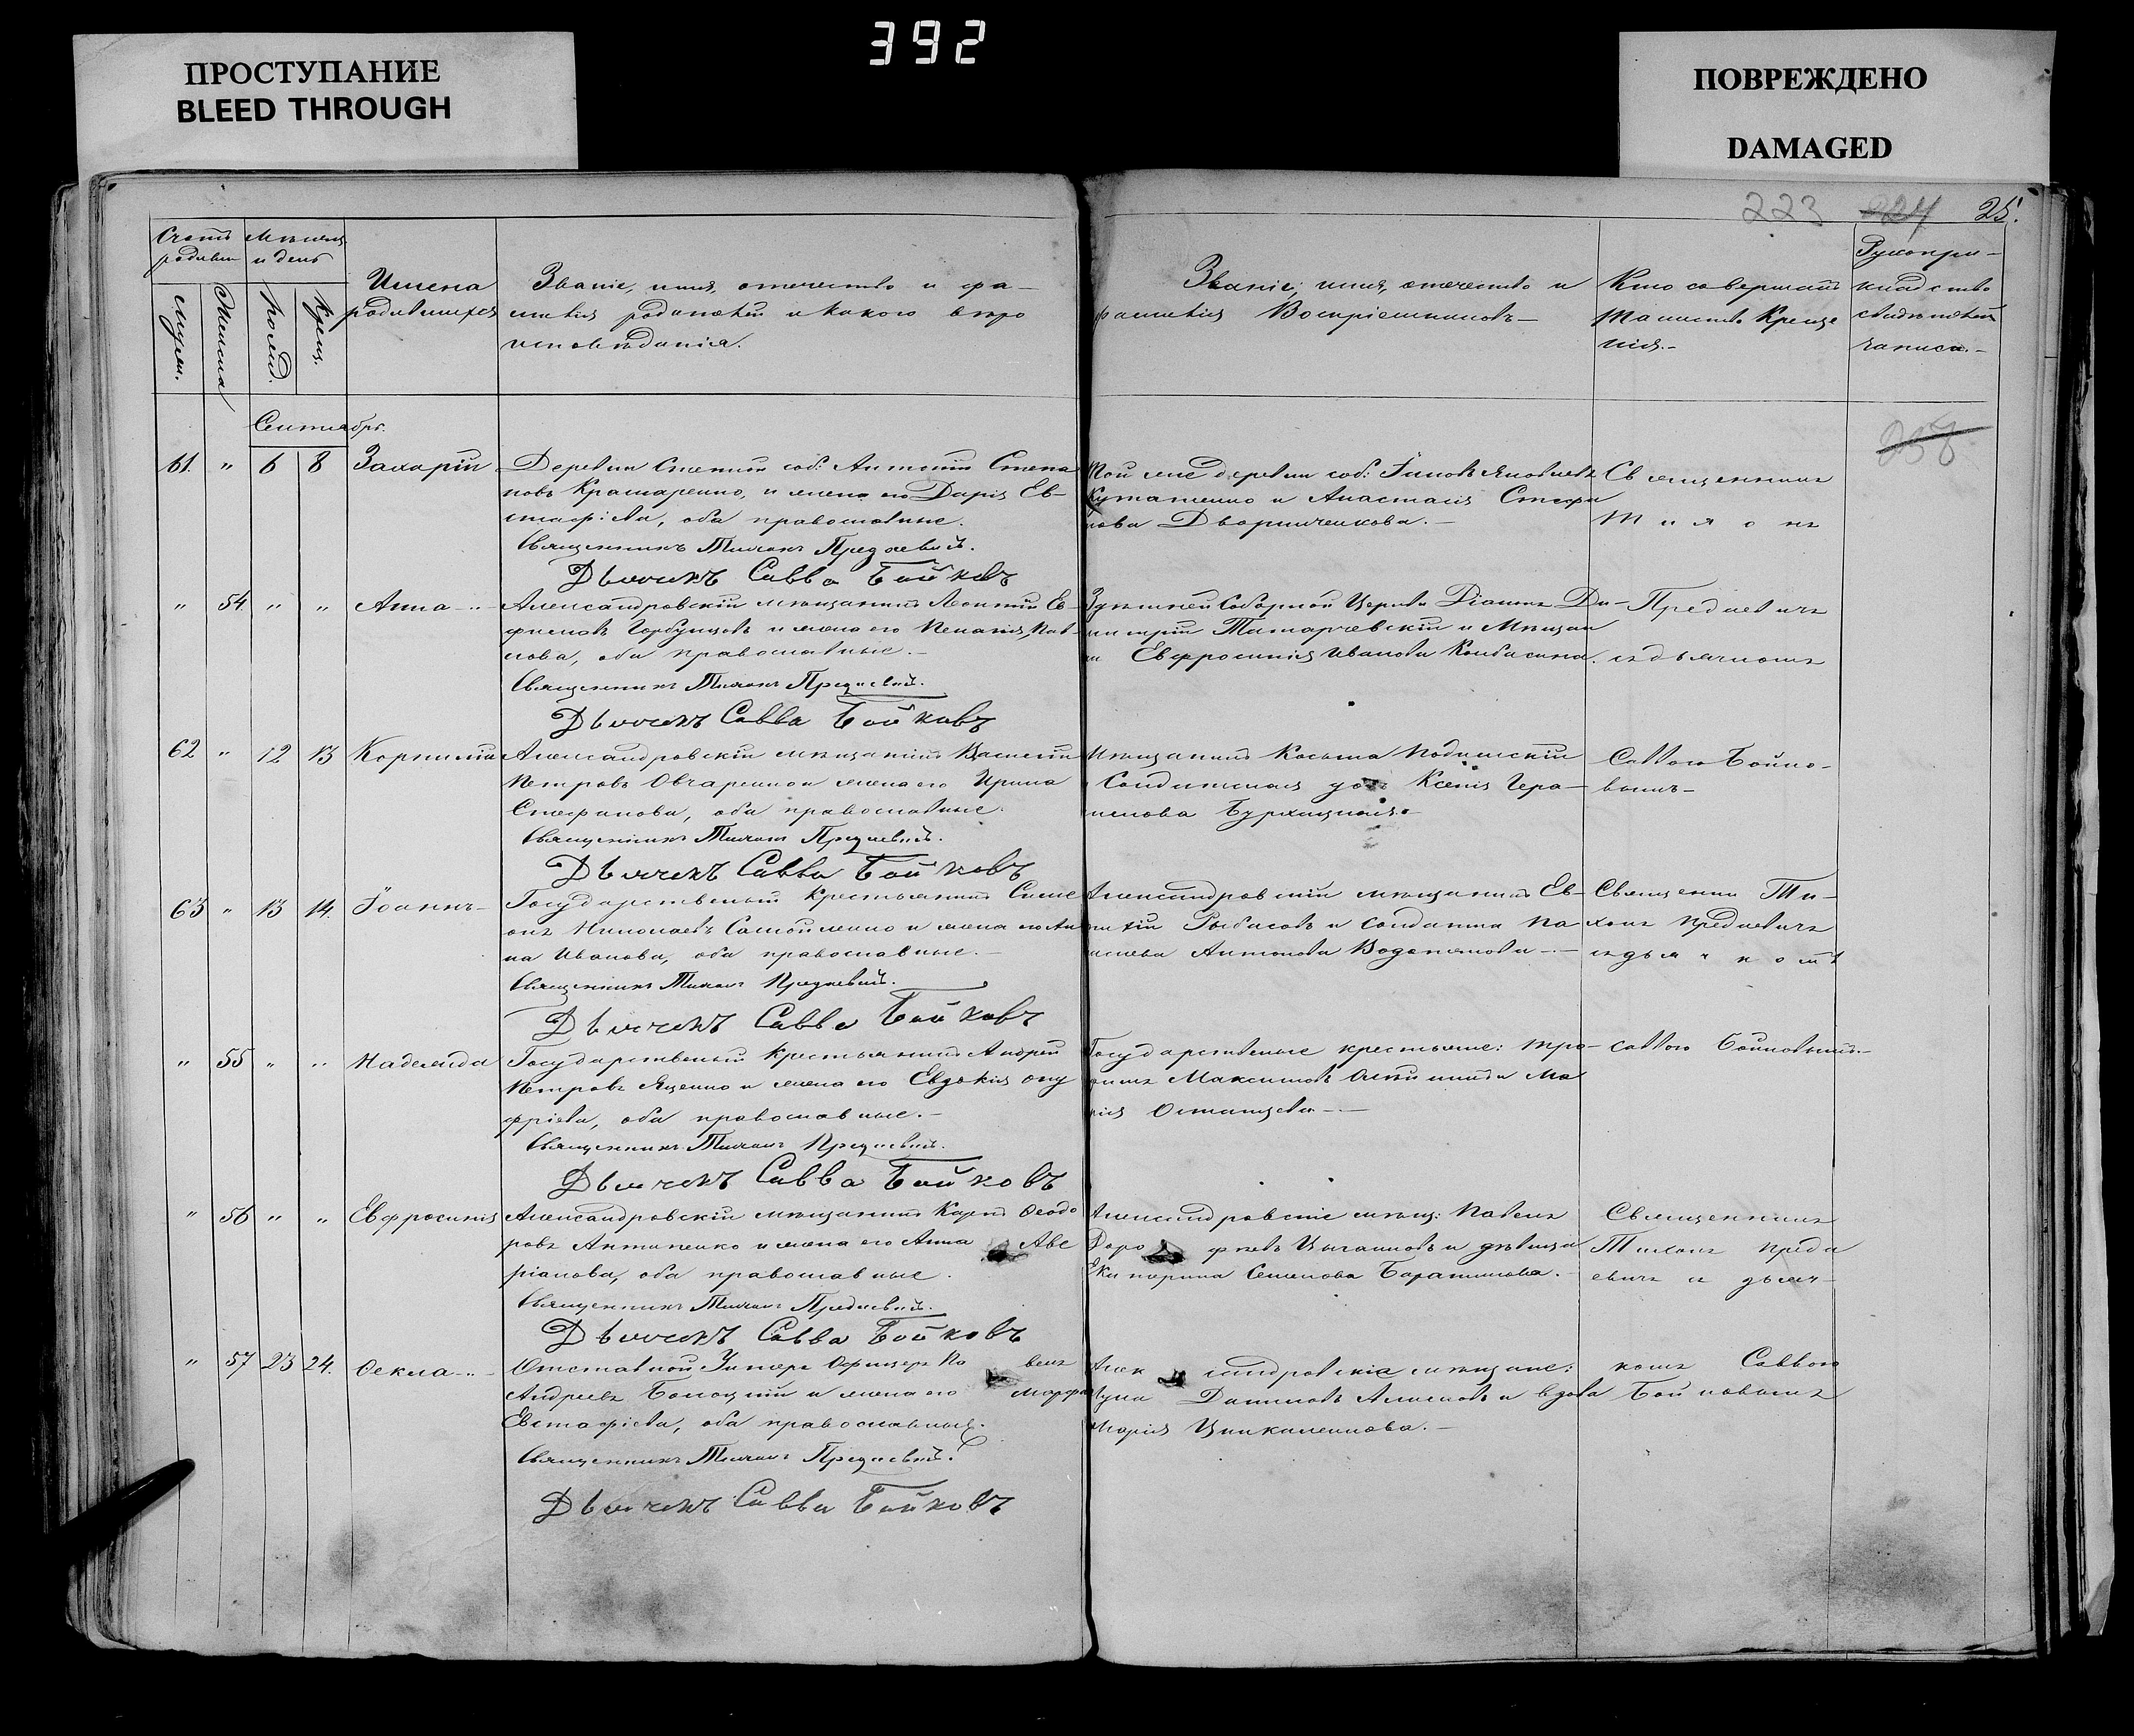 392
ПРОСТУПАНИЕ
BLEED THROUGH
ПОВРЕЖДЕНО
DAMAGED
223 224 25.
Счетъ родивш
Мѣсяцъ и день
муж.
женска
рожд.
крещ.
Имена
родившихся
Званіе, имя, отечество и фа-
милія родителей и какого вѣро
исповѣданія.
Званіе, имя, отечество и
фамилія Воспріемниковъ
Кто совершалъ
Таинство Креще
нія.
Рукопри-
кладство
свидѣтелей
записи.
Сентябрь.
258
61. " 6 8 Захарій
Деревни Степ соб: Антоній Степа
новъ Крамаренко, и жена его Дарія Ев-
стафіева, оба православные.
Священникъ Тихонъ Предаевичъ.
Дьячекъ Савва Бойковъ
Той же деревни соб: Яковлевъ
и Анастасія Стефа
нова Дворниченкова.
Священникъ
Тихонъ
" 54. " " Анна
Александровскій мѣщанинъ Леонтій Ев-
фимовъ Горбунцовъ и жена его Пелагія Пав-
лова, оба православные.
Священникъ Тихонъ Предаевичъ.
Дьячекъ Савва Бойковъ
Здѣшней Соборной Церкви Діаконъ Ди-
митрій Татарчевскій и Мѣщан
ка Евфросинія Иванова Колбасина.
Предаевичъ
съ дьячкомъ
62 " 12 13 Корнилій
Александровскій мѣщанинъ Василій
Петровъ Овчаренко и жена его Ирина
Стефанова, оба православные.
Священникъ Тихонъ Предаевичъ.
Дьячекъ Савва Бойковъ
Мѣщанинъ Косьма Подлескій
Солдатская Ксенія Гера-
симова
Саввою Бойко-
вымъ
63 " 13 14. Іоаннъ
Государственный крестьянинъ Симе
онъ Николаевъ Самойленко и жена его Ан
на Иванова, оба православные.
Священникъ Тихонъ Предаевичъ.
Дьячекъ Савва Бойковъ
Александровскій мѣщанинъ Ев-
тихій Рыбасовъ и солдатка Па-
Антонова Водопьянова
Священни Ти-
хонъ Предаевичъ
съ дьячкомъ
" 55 " " Надежда
Государственный крестьянинъ Андрей
Петровъ Яценко и жена его Евдокія Ону
фріева, оба православные.
Священникъ Тихонъ Предаевичъ.
Дьячекъ Савва Бойковъ
Государственные крестьяне: Тро-
фимъ Максимовъ и Ма
рія Остапцева
Саввою Бойковымъ.
" 56 " " Евфросинія
Александровскій мѣщанинъ Карпъ Ѳеодо
ровъ Антипенко и жена его Анна Аве
ріанова, оба православные.
Священникъ Тихонъ Предаевичъ.
Дьячекъ Савва Бойковъ
Александровскіе мѣщ: Павелъ
Доро феевъ Цыганковъ и дѣвица
Екатерина Семенова
Священникъ
Тихонъ Преда
евичъ съ дьяч-
" 57 23 24. Ѳекла
Отставной Унтеръ Офицеръ Па велъ
Андреевъ Болоцкій и жена его Марфа
Евстафіева, оба православные.
Священникъ Тихонъ Предаевичъ.
Дьячекъ Савва Бойковъ
Алек сандровскіе мѣщане:
Даниловъ и вдова
Марія
комъ Саввою
Бойковымъ